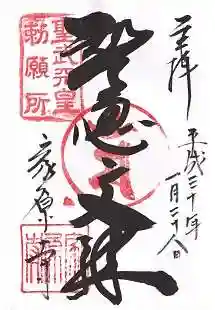 奉拝
平成三十年
一月二十八日
智恵文殊
聖武天皇
勅願所
家原寺